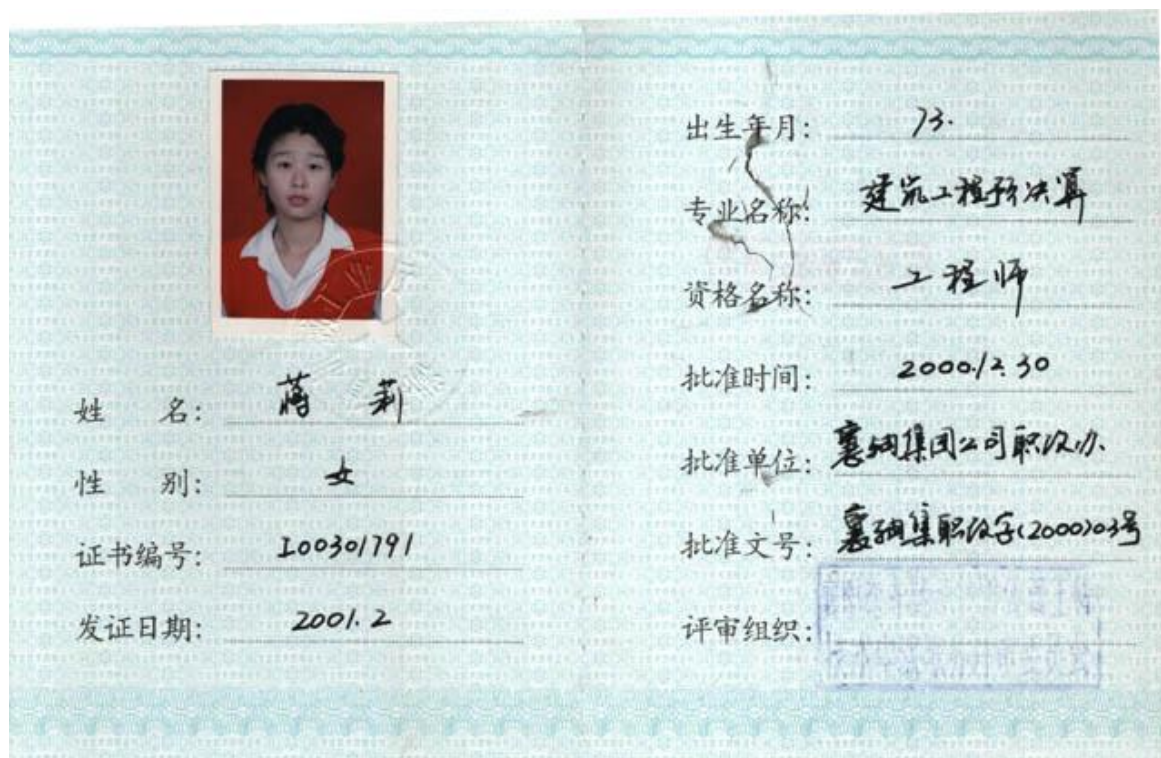 姓 名: 蒋 莉
性 别: 女
证书编号: I00301791
发证日期: 2001.2
出生年月: 73.
专业名称: 建筑工程预决算
资格名称: 工程师
批准时间: 2000.12.30
批准单位: 襄钢集团公司职改办
批准文号: 襄钢集职改字(2000)03号
评审组织: